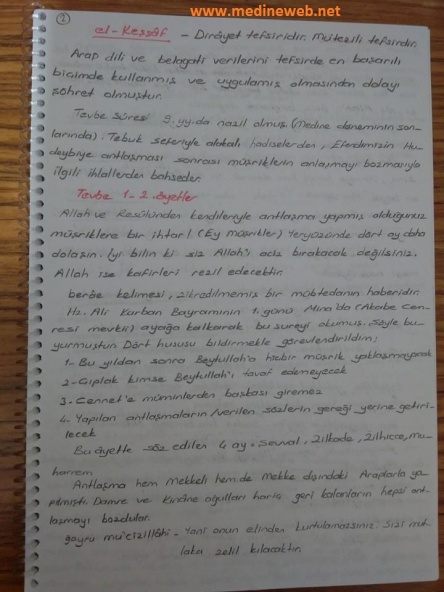 www.medineweb.net
2
el-Keşşâf - Dirâyet tefsiridir. Mutezili tefsirdir.
Arap dili ve belagati verilerini tefsirde en başarılı
biçimde kullanmış ve uygulamış olmasından dolayı
şöhret olmuştur.
Tevbe sûresi 9.yy.da nazil olmuş. (Medine döneminin son-
larında). Tebuk seferiyle alakalı hadiselerden, Efendimizin Hu-
deybiye antlaşması sonrası müşriklerin anlaşmayı bozmasıyla
ilgili ihlallerden bahseder.
Tevbe 1-2. âyetler
Allah ve Resûlünden kendileriyle antlaşma yapmış olduğunuz
müşriklere bir ihtar! (Ey müşrikler) Yeryüzünde dört ay daha
dolaşın. İyi bilin ki siz Allah'ı aciz bırakacak değilsiniz.
Allah ise kafirleri rezil edecektir.
berâe kelimesi, zikredilmemiş bir mübtedanın haberidir.
Hz. Ali Kurban Bayramının 1. günü Mina'da (Akabe Cem-
resi mevkii) ayağa kalkarak bu sureyi okumuş. Şöyle bu-
yurmuştur Dört hususu bildirmekle görevlendirildim:
1- Bu yıldan sonra Beytullah'a hiçbir müşrik yaklaşmayacak
2- Çıplak kimse Beytullah'ı tavaf edemeyecek
3- Cennet'e müminlerden başkası giremez
4. Yapılan antlaşmaların/verilen sözlerin gereği yerine getiri-
lecek
Bu âyette söz edilen 4 ay. Şevval, zilkade, zilhicce, mu-
harrem
Antlaşma hem Mekkeli hem de Mekke dışındaki Araplarla ya-
pılmıştı. Damre ve Kinâne oğulları hariç geri kalanların hepsi ant-
laşmayı bozdular.
gayru mu'cizillâhi - Yani onun elinden kurtulamazsınız. Sizi mut-
laka zelil kılacaktır.